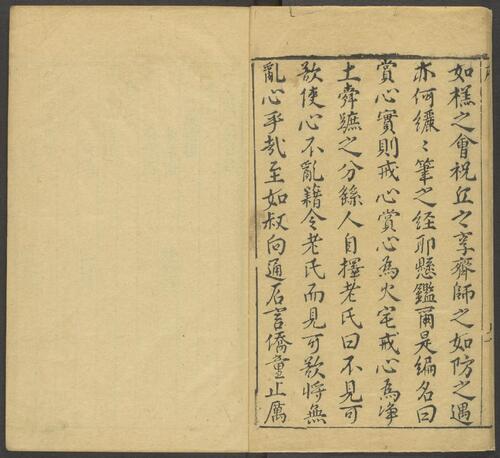 如𥞊之會祝丘之享齊師之如防之遇
亦何纚〻筆之經耶懸鑑爾是編名曰
賞心實則戒心賞心為火宅戒心為净
土舜蹠之分繇人自擇老氏曰不見可
欲使心不亂藉令老氏而見可欲將無
亂心乎哉至如叔向適后言僑童止厲